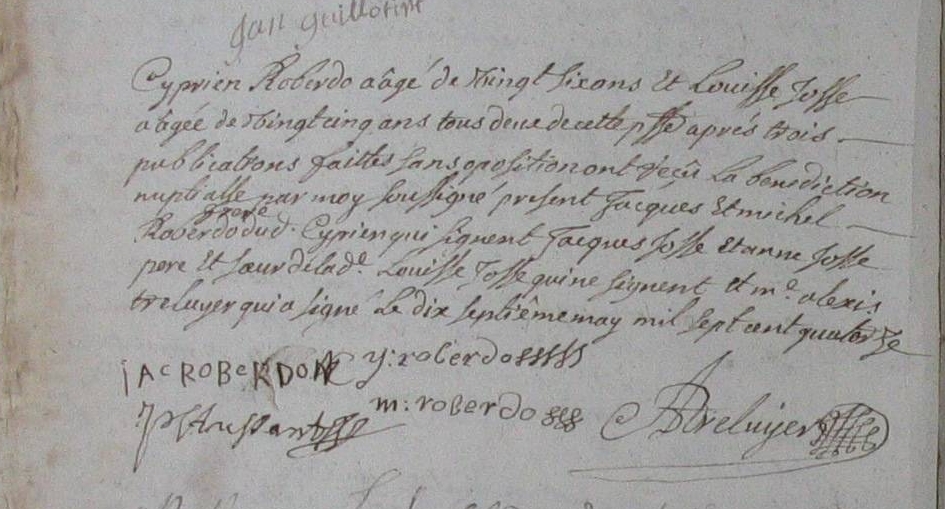 Jan guillotin
Cyprien Roberdo aâgé de Vingt six ans Et Louisse Josse
aâgée de Vingt cinq ans tous deux de cette psse aprés trois
publications faittes sans oposition ont reçû La benediction
nuptialle par moy soussigné présent Jacques Et michel
frere
Roberdo dud. Cyprien qui signent Jacques Josse Et anne Josse
pere Et soeur de lade. Louisse Josse qui ne signent et me. alexis
treluyer qui a signé Le dix septiême may mil sept cent quatorze
iAC ROBERDO y: roberdo
m: roberdo ADtreluyer